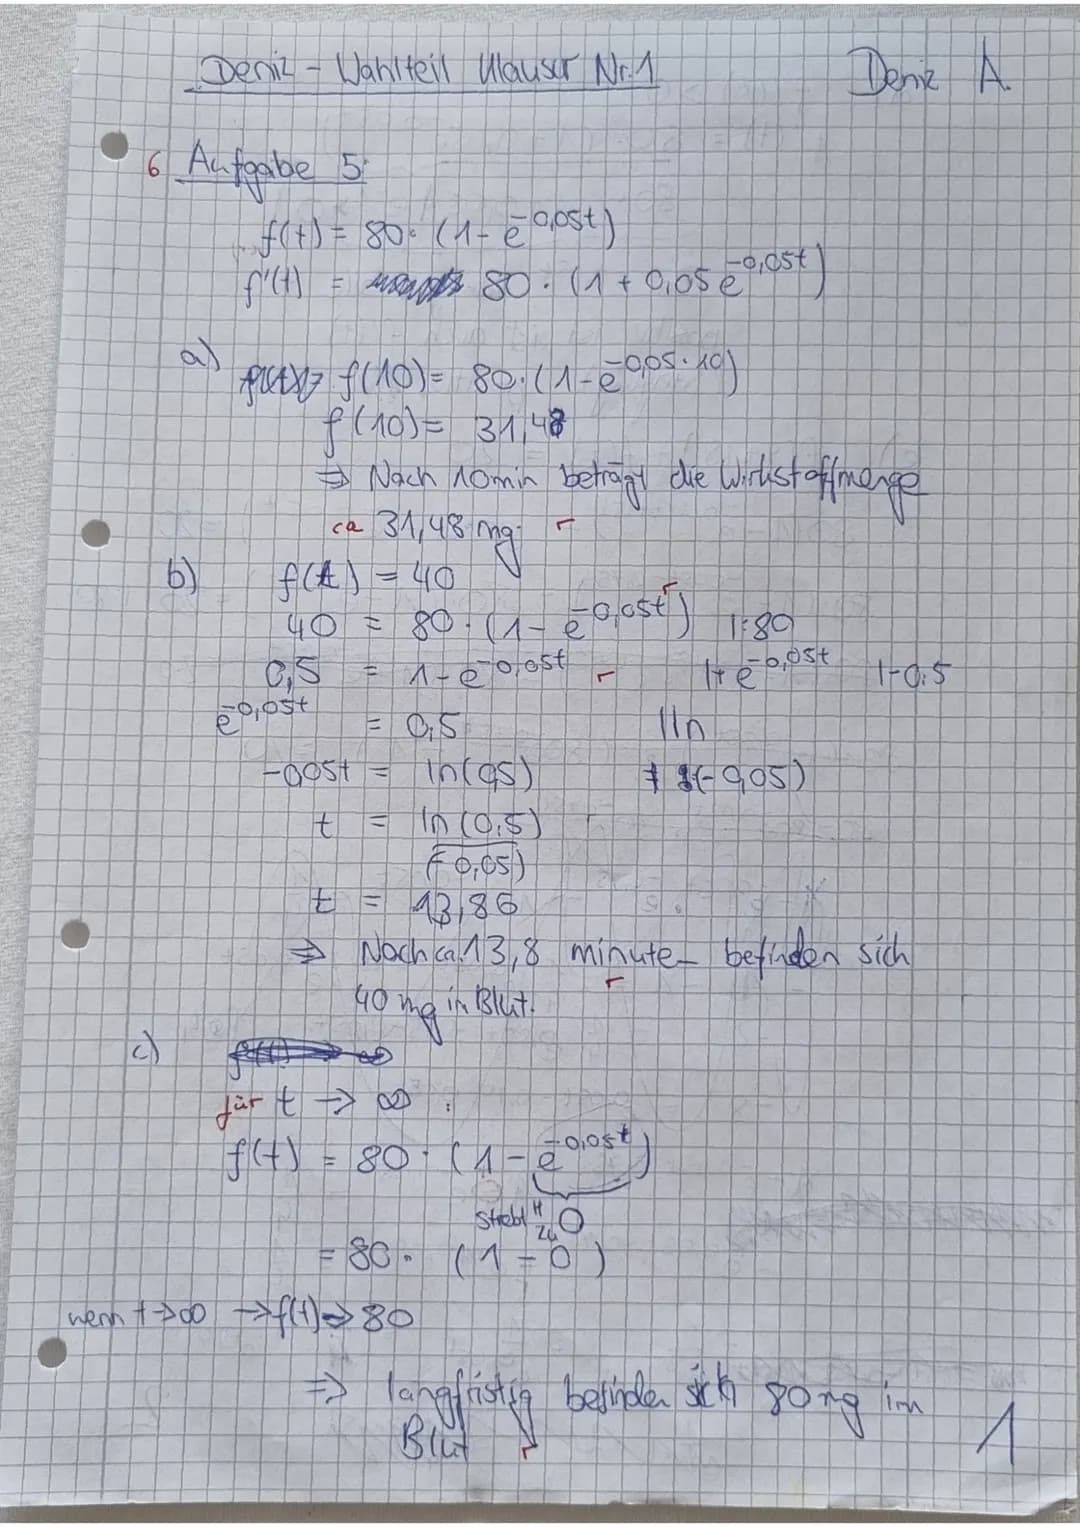 Deniz - Wahlteil Klausur Nr.1 Deniz A.
6 Aufgabe 5:
f(t) = 80 · (1 - e^-0,05t)
f'(t) = 80 · (1 + 0,05 e^-0,05t)
a) f(10) = 80 · (1 - e^-0,05·10)
f(10) = 31,48
⇒ Nach 10min beträgt die Wirkstoffmenge
ca 31,48 mg.
b) f(t) = 40
40 = 80 · (1 - e^-0,05t) |:80
0,5 = 1 - e^-0,05t |+ e^-0,05t |-0,5
e^-0,05t = 0,5 |ln
-0,05t = ln(0,5) :(-0,05)
t = ln(0,5)
(-0,05)
t = 13,86
⇒ Nach ca. 13,8 minute befinden sich
40 mg in Blut.
c)
für t → ∞ :
f(t) = 80 · (1 - e^-0,05t)
strebt zu 0
= 80 · (1 - 0)
wenn t → ∞ → f(t) → 80
⇒ langfristig befinden sich 80 mg im
Blut
1